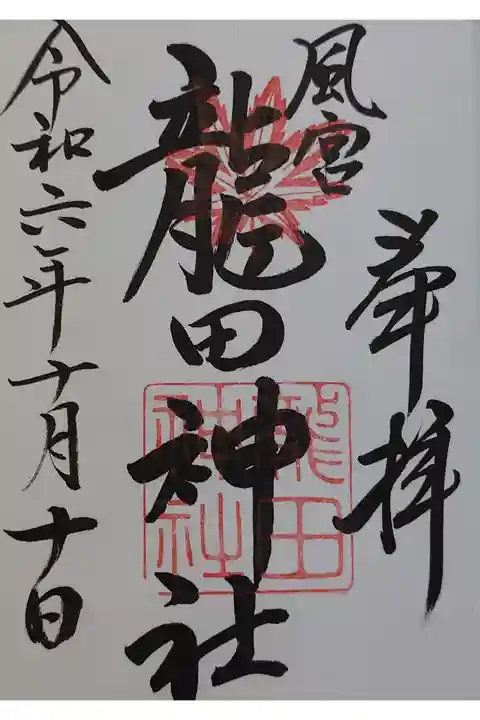 奉拝
風宮
龍田神社
龍田神社
令和六年十月十日